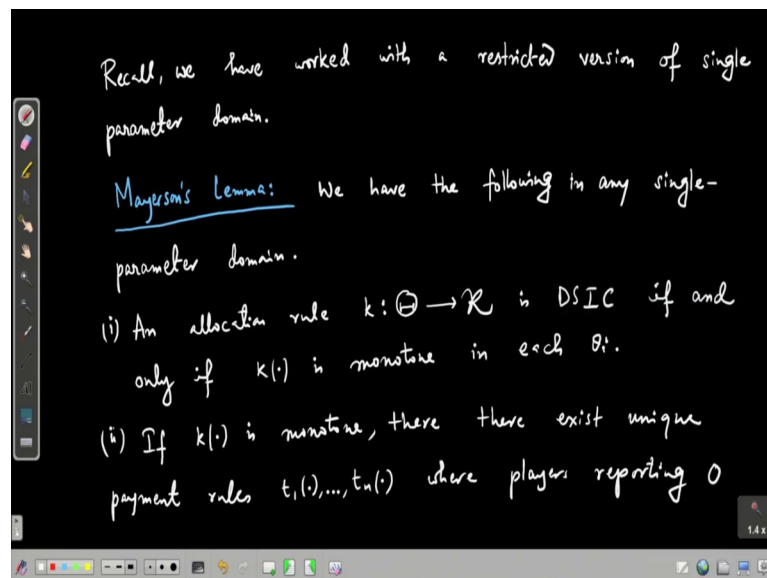 Recall, we have worked with a restricted version of single
parameter domain.
Mayerson's Lemma: We have the following in any single-
parameter domain.
(i) An allocation rule k: Θ → K is DSIC if and
only if k(·) is monotone in each θi.
(ii) If k(·) is monotone, there there exist unique
payment rules t1(·),..., tn(·) where players reporting 0
1.4 x